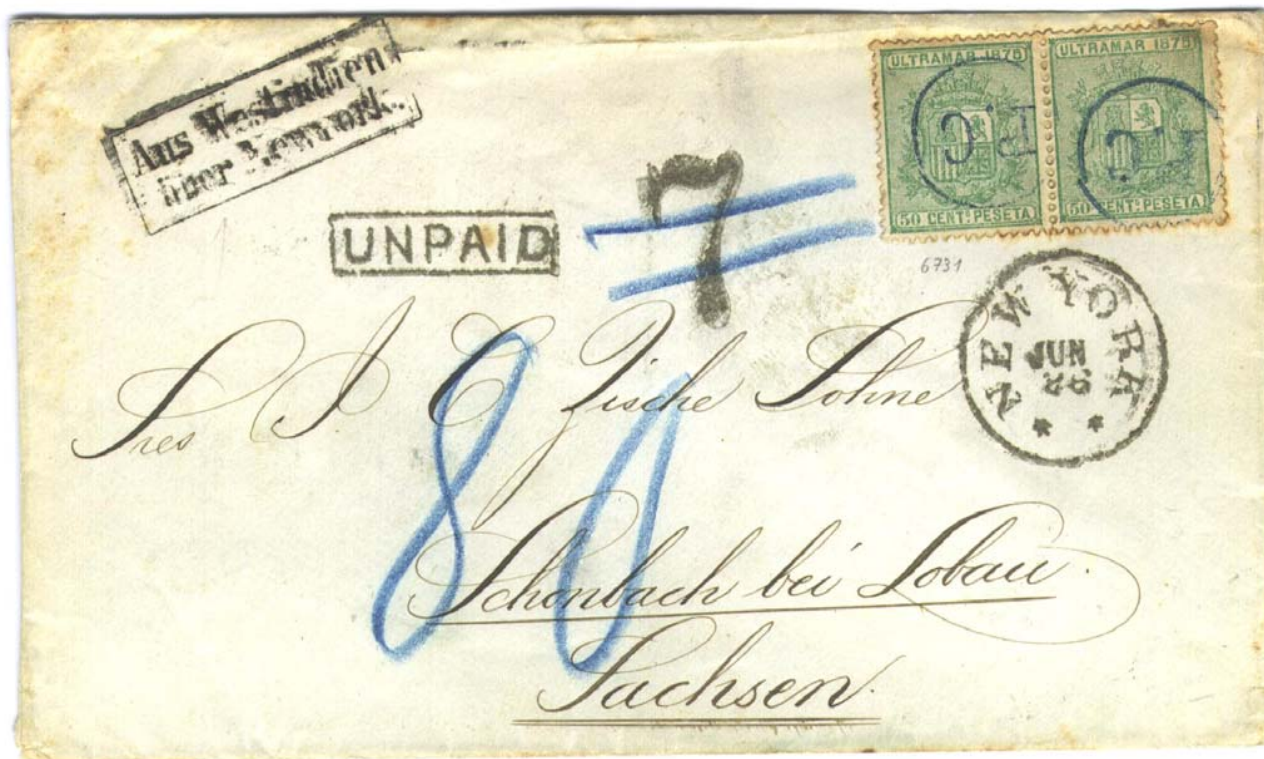 Aus Westindien
über Newyork.
ULTRAMAR 1875
50 CENT.s PESETA
ULTRAMAR 1875
50 CENT.s PESETA
P.C
P.C
UNPAID
7
6731
NEW YORK
JUN
26
Sres J C Zische Sohne
80
Schonbach bei Lobau.
Sachsen.